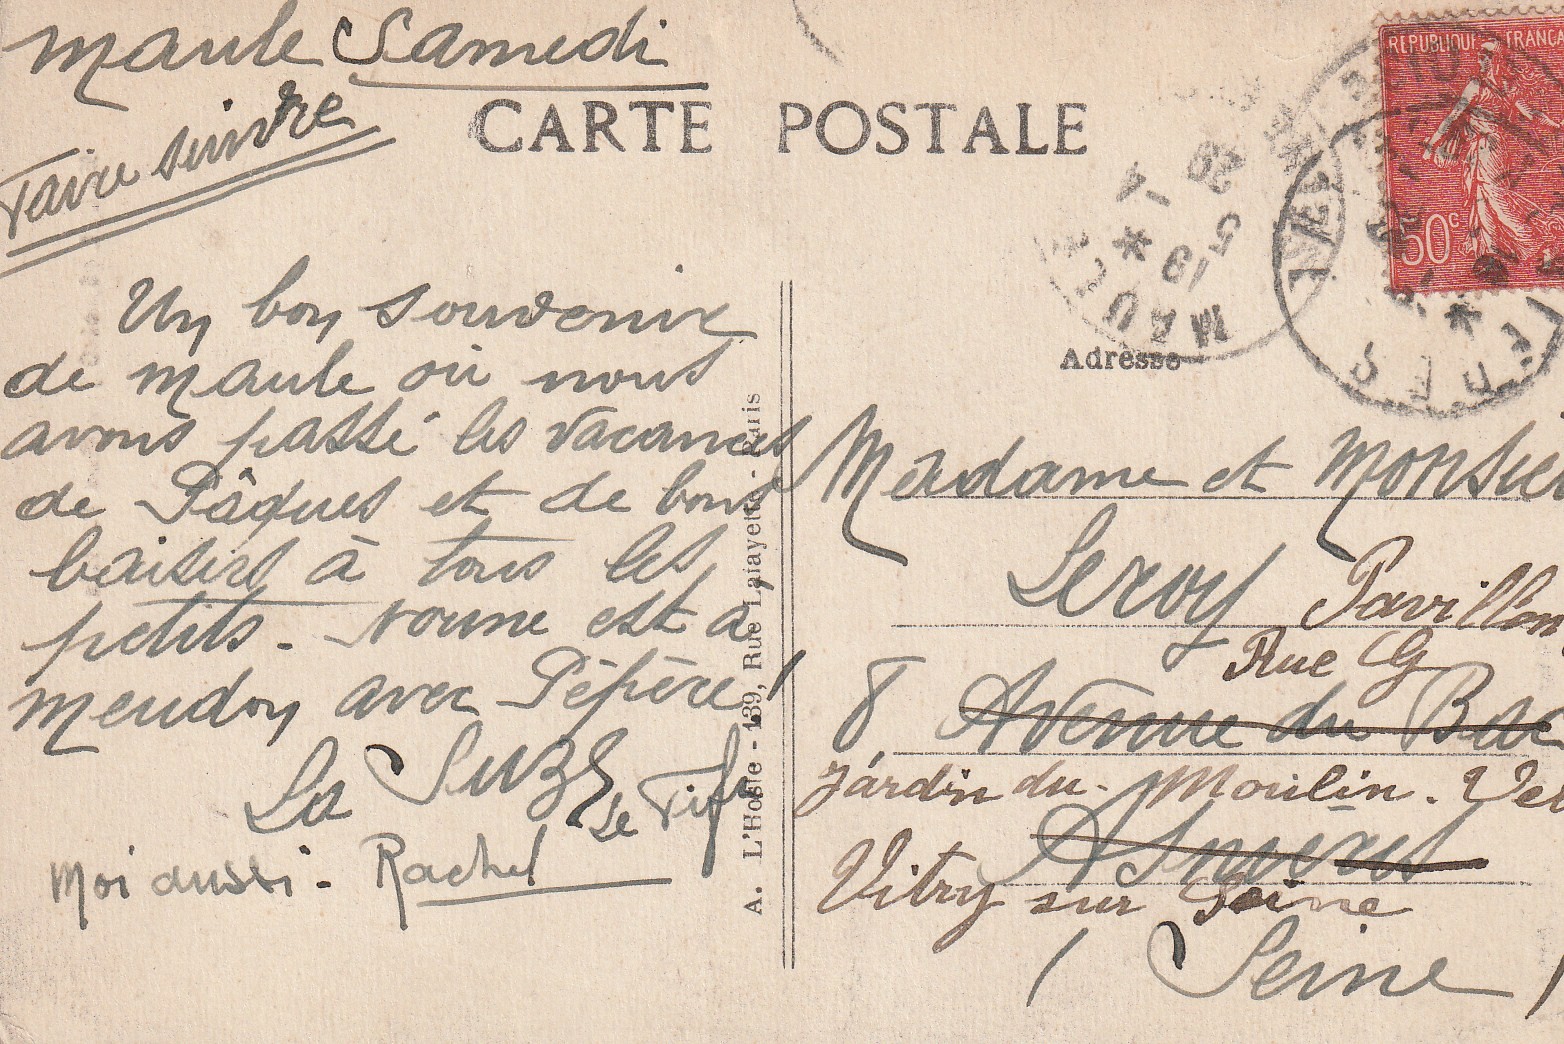 Maule Samedi
Faire suivre
CARTE POSTALE
REPUBLIQUE FRANCA
50c
19 5
29
MAULE
Adresse
Un bon souvenir
de Maule où nous
avons passé les vacances
de Pâques et de bons
baisers à tous les
petits. Noune est à
Meudon avec Pépère!
La Suze
Le Tif
Moi aussi. Rachel
A. L'Hoste - 139, Rue Lafayette - Paris
Madame et Monsieu
Leroy Pavillon
Rue G
8 Avenue du Bac
Jardin du. Moulin. Ve
Asnieres
Vitry sur Seine
(Seine)